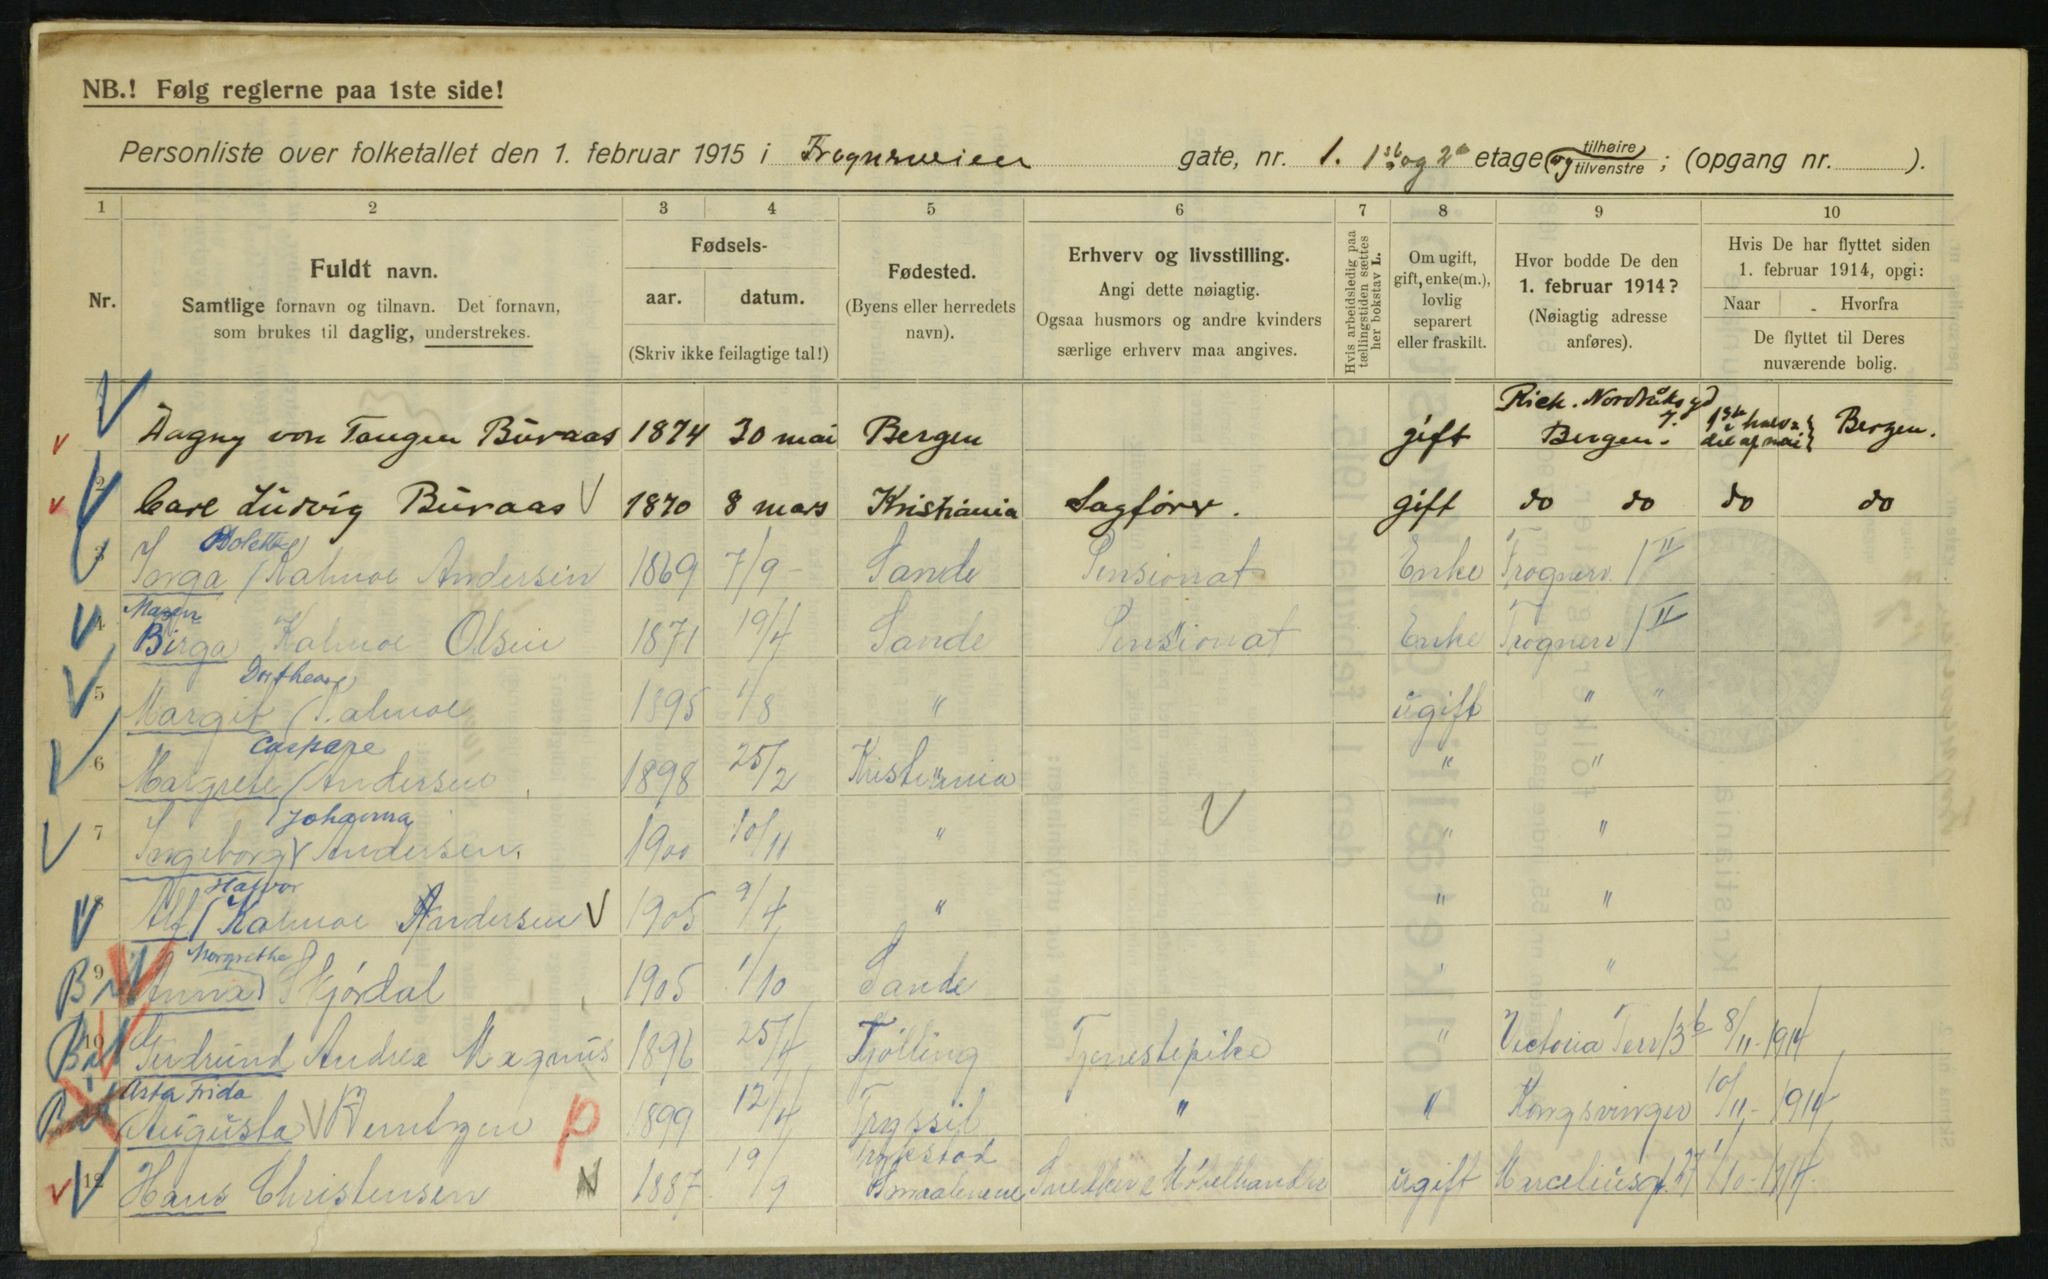 NB.! Følg reglerne paa 1ste side!
Personliste over folketallet den 1. februar 1915 i Frognerveien gate, nr. 1. 1ste og 2den etage (og tilhøire/tilvenstre; (opgang nr. ).
1 2 3 4 5 6 7 8 9 10
Nr.
Fuldt navn.
Samtlige fornavn og tilnavn. Det fornavn,
som brukes til daglig, understrekes.
Fødsels-
aar. datum.
(Skriv ikke feilagtige tal!)
Fødested.
(Byens eller herredets
navn).
Erhverv og livsstilling.
Angi dette nøiagtig.
Ogsaa husmors og andre kvinders
særlige erhverv maa angives.
Hvis arbeidsledig paa
tællingstiden sættes
her bokstav L.
Om ugift,
gift, enke(m.),
lovlig
separert
eller fraskilt.
Hvor bodde De den
1. februar 1914?
(Nøiagtig adresse
anføres).
Hvis De har flyttet siden
1. februar 1914, opgi:
Naar Hvorfra
De flyttet til Deres
nuværende bolig.
Dagny von Tangen Buraas 1874 30 mai Bergen gift Rich. Nordråks gd 7. Bergen. 1ste halvdel af mai Bergen.
2 Carl Ludvig Buraas 1870 8 mars Kristiania Sagfører. gift do do do do
3 Inga Dolette Kalmoe Andersen 1869 7/9 Sande Pensionat Enke Frognerv. 1 II
4 Maren Birga Kalmoe Olsen 1871 19/4 Sande Pensionat Enke Frognerv 1 II
5 Margit Dorthea Kalmoe 1895 1/8 " ugift " "
6 Margrete Caspara Andersen 1898 25/2 Kristiania " "
7 Ingeborg Johanna Andersen. 1900 10/11 " " "
8 Alf Halvor Kalmoe Andersen 1905 9/4 " " "
9 Anna Margrethe Hjørdal 1905 1/10 Sande " "
10 Gudrund Andrea Magnus 1896 25/4 Tjølling Tjenestepike " Victoria Terr 13 b 8/11-1914
Asta Frida
Augusta Berntzen p 1899 12/4 Tryssil " " Kongsvinger 10/11-1914
12 Hans Christensen 1887 19/9 Trøkstad Smaalenene Snedker & Møbelhandler ugift Marceliusgt. 27 1/10-1914.